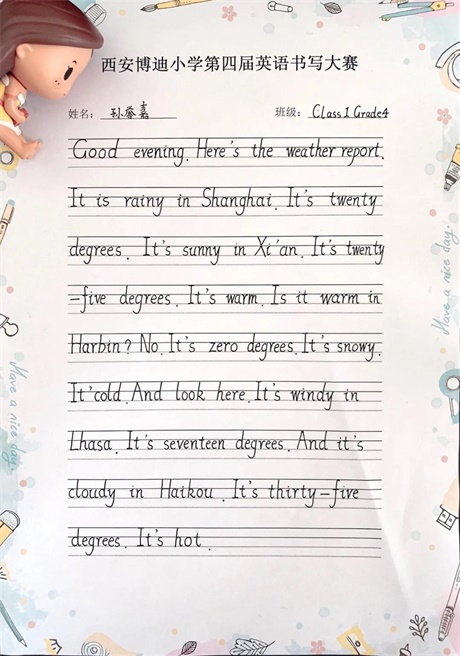 西安博迪小学第四届英语书写大赛
姓名: 孙誉嘉 班级: Class 1 Grade4
Good evening. Here's the weather report.
It is rainy in Shanghai. It's twenty
degrees. It's sunny in Xi'an. It's twenty
-five degrees. It's warm. Is it warm in
Harbin? No. It's zero degrees. It's snowy.
It'cold. And look here. It's windy in
Lhasa. It's seventeen degrees. And it's
cloudy in Haikou. It's thirty-five
degrees. It's hot.
Have a nice day.
Have a nice day.